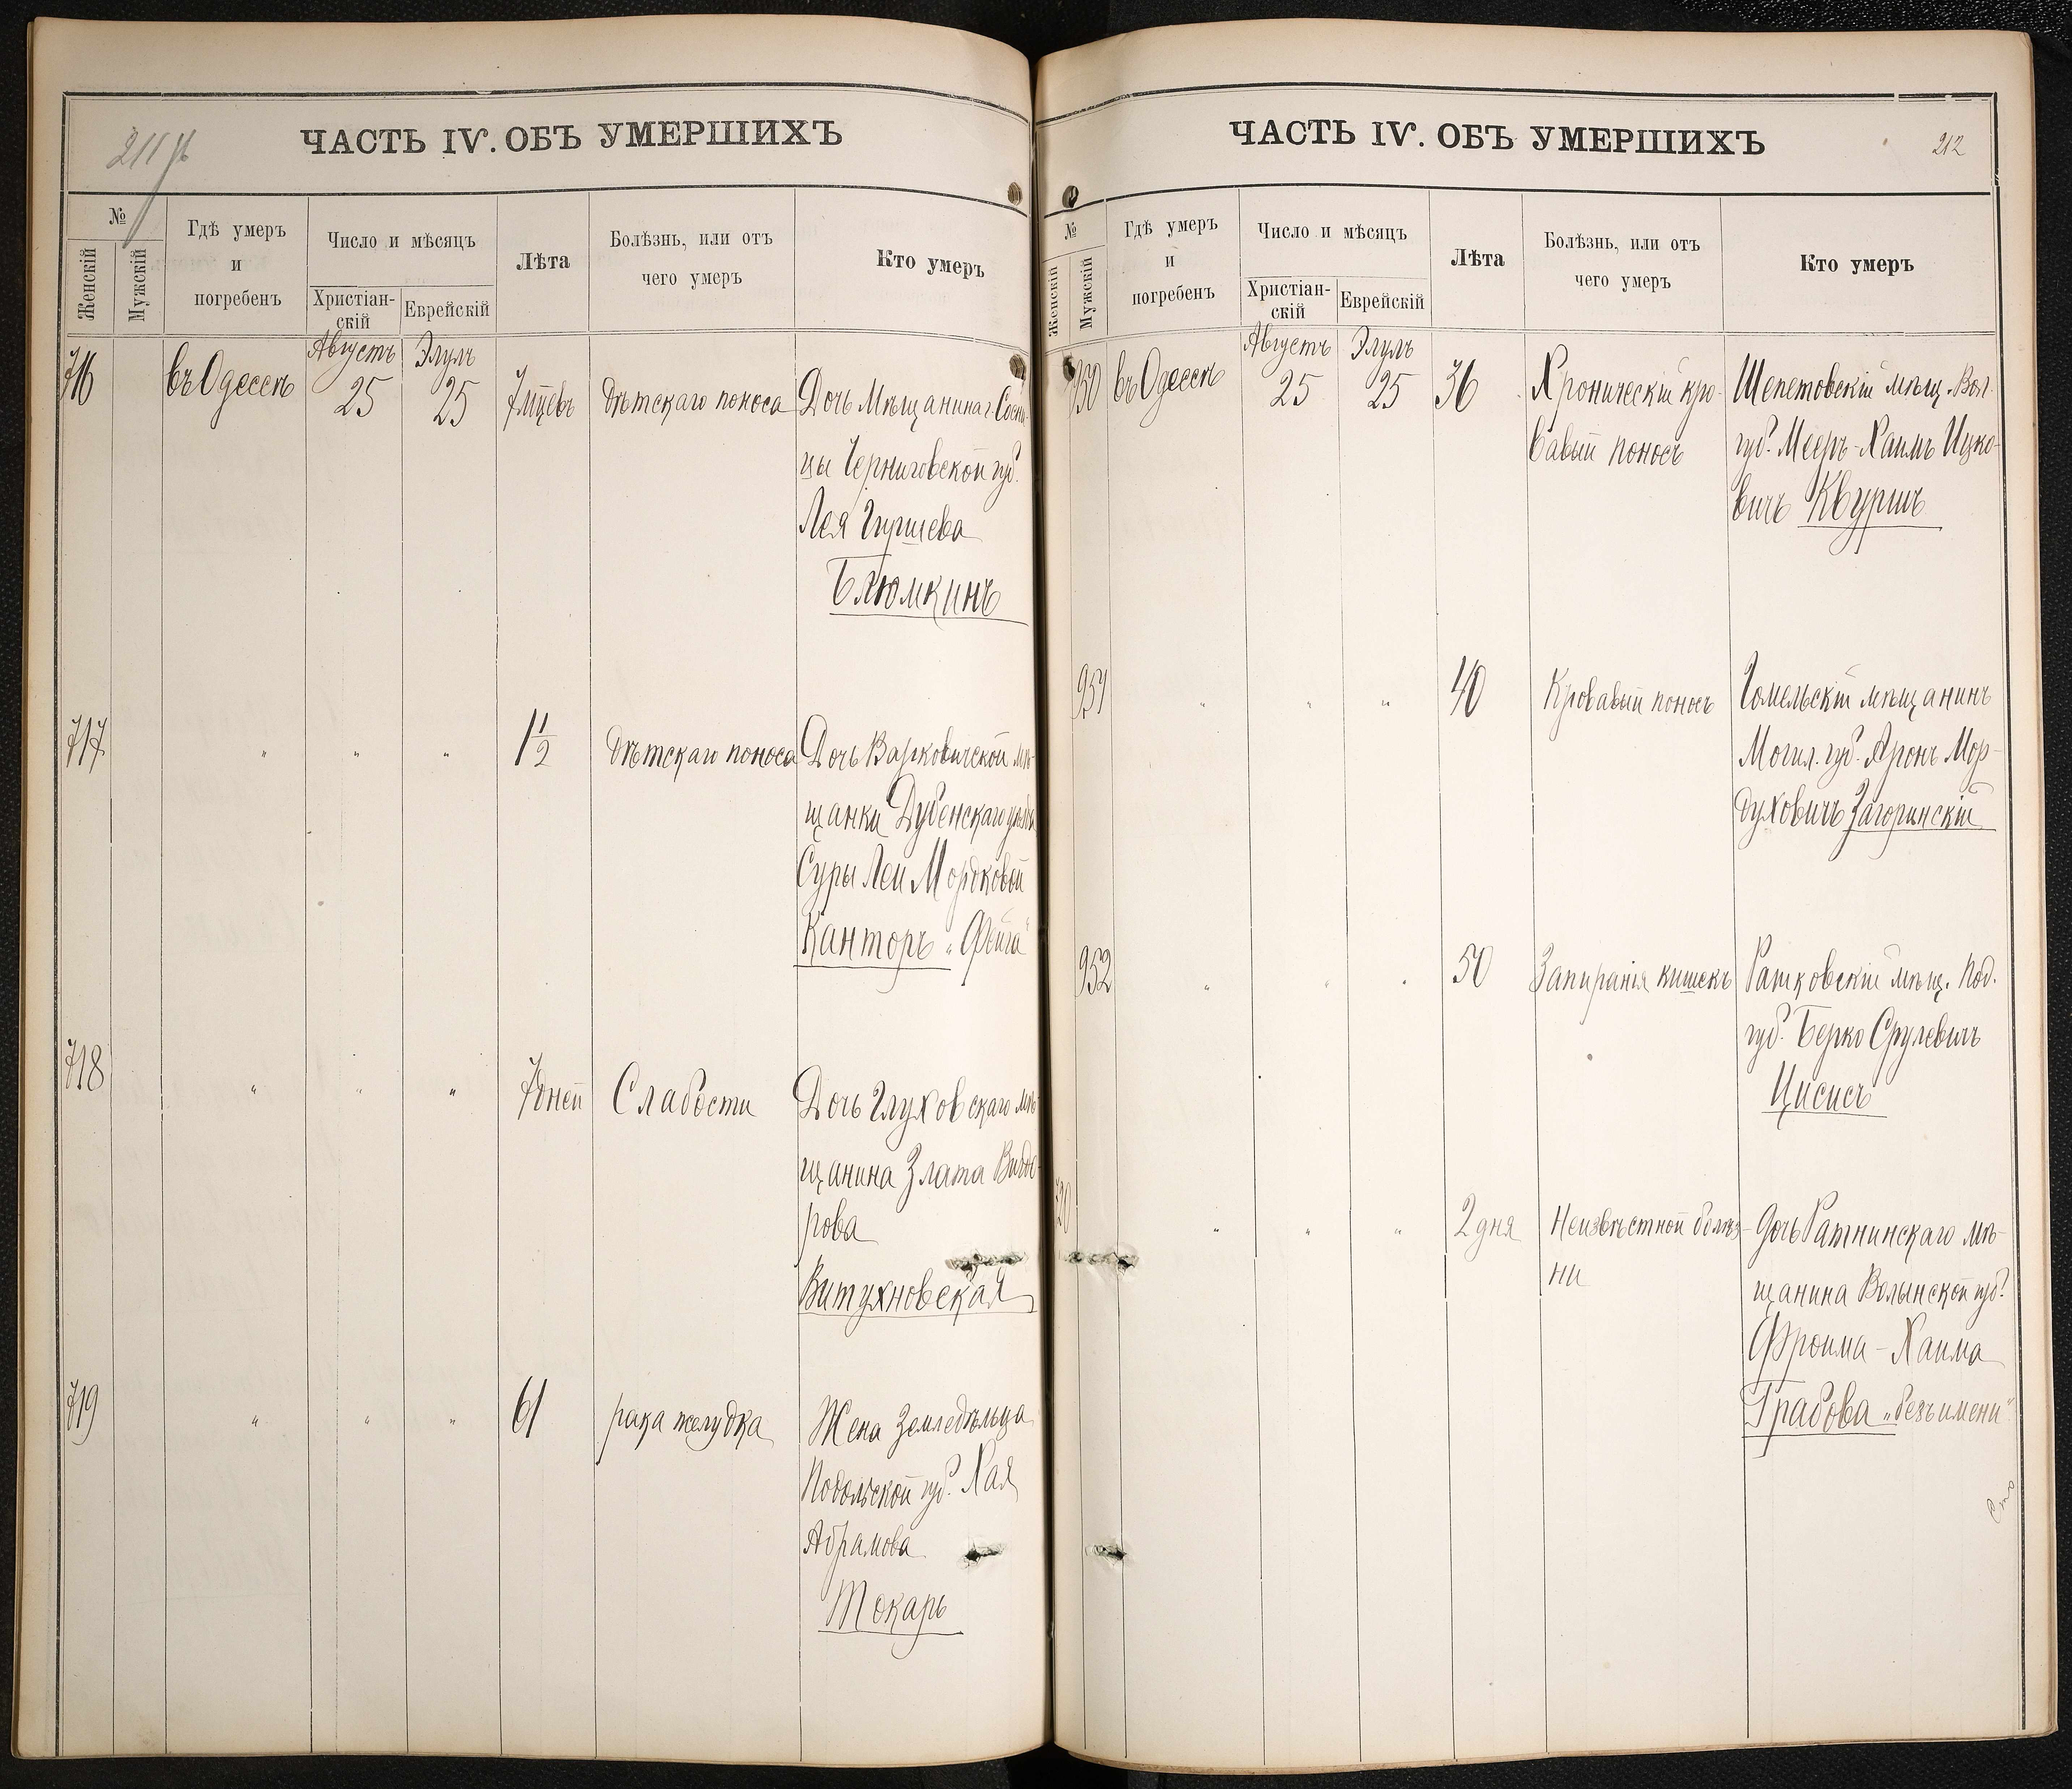 211
ЧАСТЬ IV. ОБЪ УМЕРШИХЪ
№
Женскій
Мужскій
Гдѣ умеръ
и
погребенъ
Число и мѣсяцъ
Христіан-
скій
Еврейскій
Лѣта
Болѣзнь, или отъ
чего умеръ
Кто умеръ
716
въ Одессѣ
Августъ
25
Элулъ
25
7 мцевъ
Дѣтскаго поноса
Дочь Мѣщанина г. Сосни-
цы Черниговской губ.
Лея Гиршева
Блюмкинъ
717
"
"
"
1½
Дѣтскаго поноса
Дочь Варковичской мѣ-
щанки Дубенскаго уѣзда
Суры Леи Мордковой
Канторъ "Фейга"
718
"
"
"
7 дней
Слабости
Дочь Глуховскаго мѣ-
щанина Злата Вигдо-
рова
Витухновская
719
"
"
"
61
рака желудка
Жена Земледѣльца
Подольской губ. Хая
Абрамова
Токарь
ЧАСТЬ IV. ОБЪ УМЕРШИХЪ
212
№
Женскій
Мужскій
Гдѣ умеръ
и
погребенъ
Число и мѣсяцъ
Христіан-
скій
Еврейскій
Лѣта
Болѣзнь, или отъ
чего умеръ
Кто умеръ
950
въ Одессѣ
Августъ
25
Элулъ
25
36
Хроническій кро-
вавый поносъ
Шепетовскій мѣщ. Вол.
губ. Мееръ-Хаимъ Ицко-
вичъ Квуришъ
951
"
"
"
40
Кровавый поносъ
Гомельскій мѣщанинъ
Могил. губ. Аронъ Мор-
духовичъ Загоринскій
952
"
"
"
50
Запиранія кишекъ
Рашковскій мѣщ. Под.
губ. Берко Срулевичъ
Цисисъ
720
"
"
"
2 дня
Неизвѣстной болѣз-
ни
Дочь Ратнинскаго мѣ-
щанина Волынской губ.
Фроима-Хаима
Грабова "безъ имени"